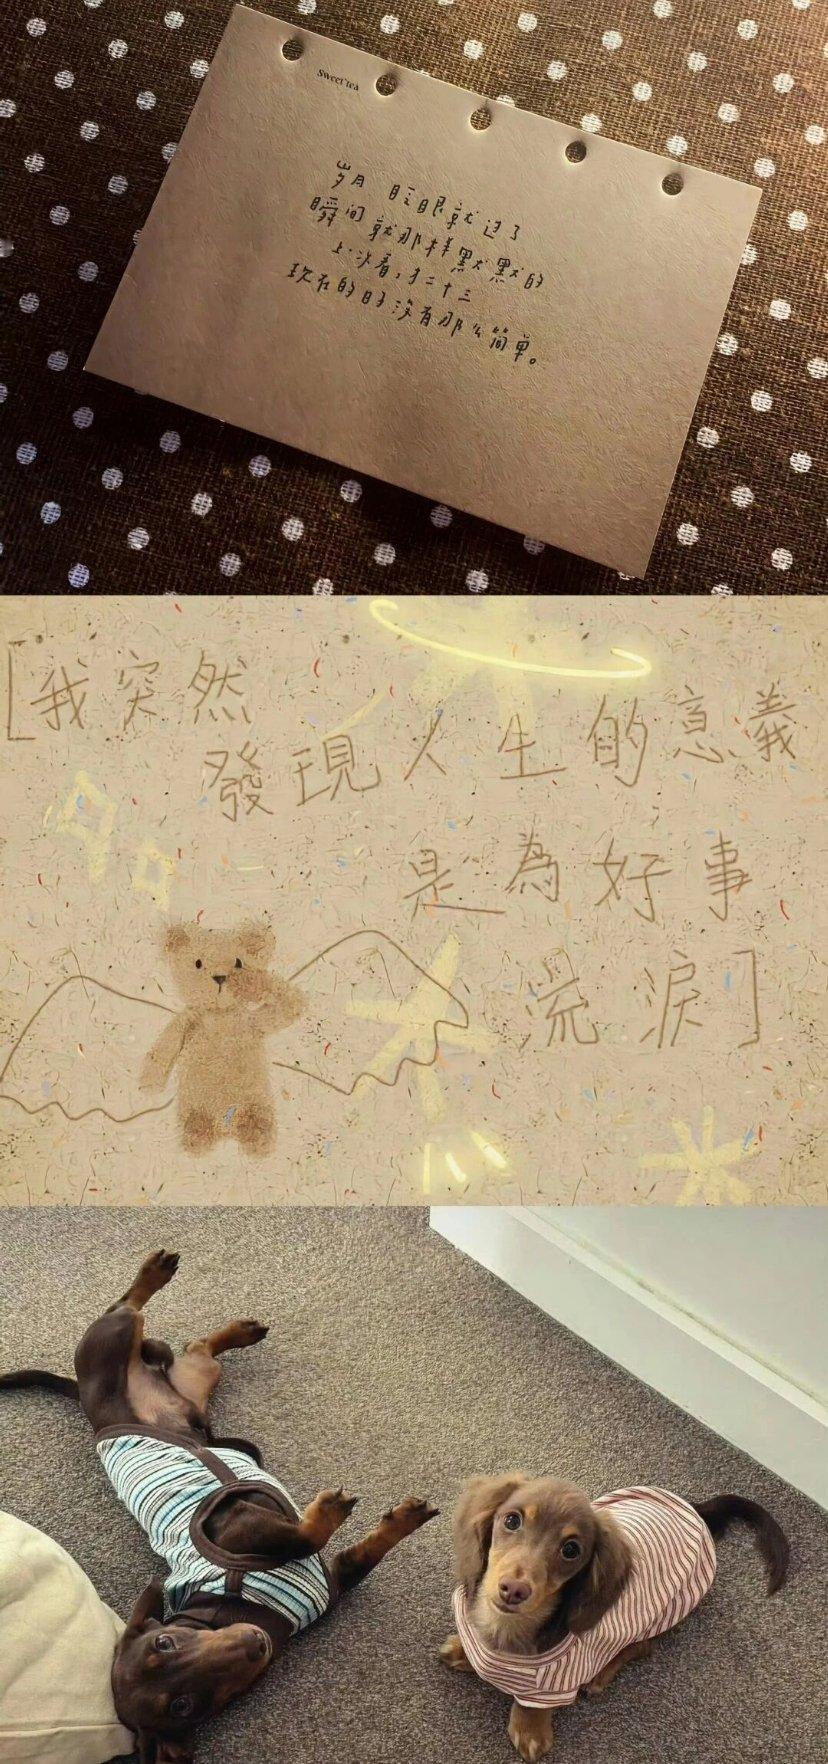 sweet tea
岁月 眨眼就过了
瞬间就那样默默的
上次看,才二十三
现在的日子没有那么简单。
[我突然
發現人生的意義
是為好事
流淚]